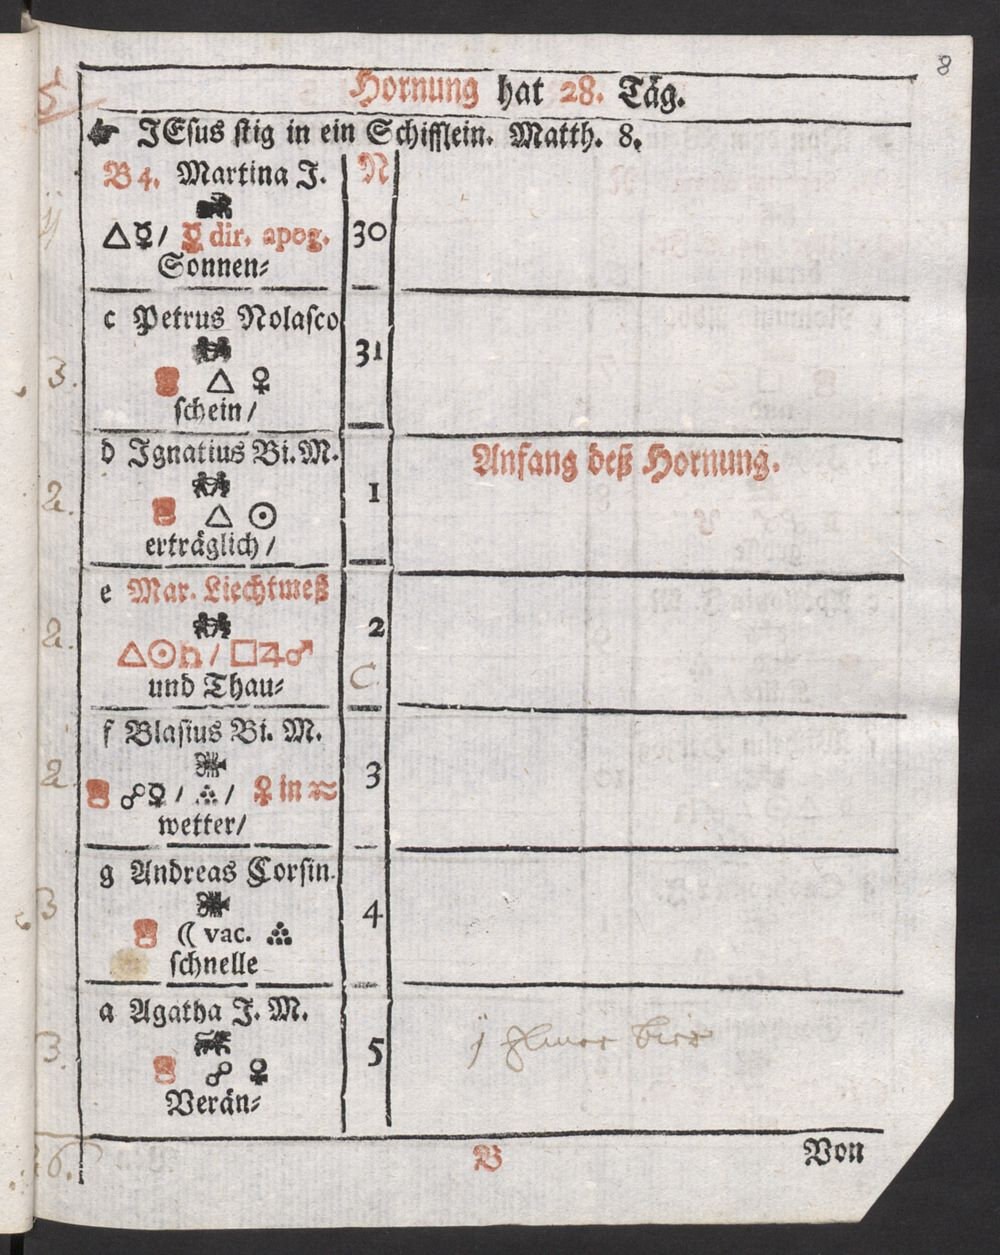 8
Hornung hat 28. Täg.
JEsus stig in ein Schifflein. Matth. 8.
B 4. Martina J. N
△☿/ ☿ dir. apog. 30
Sonnen⸗
c Petrus Nolasco
△ ♀ 31
schein/
d Ignatius Bi. M.
△ ☉ 1
erträglich/
Anfang deß Hornung.
e Mar. Liechtmeß
△☉♄/ □♃♂ 2
und Thau⸗
C
f Blasius Bi. M.
☍☿/ /♀ in ♒ 3
wetter/
g Andreas Corsin.
☾ vac. 4
schnelle
a Agatha J. M.
☍ ☿ 5
Verän⸗
B Von
3.
2.
2.
2
3
3.